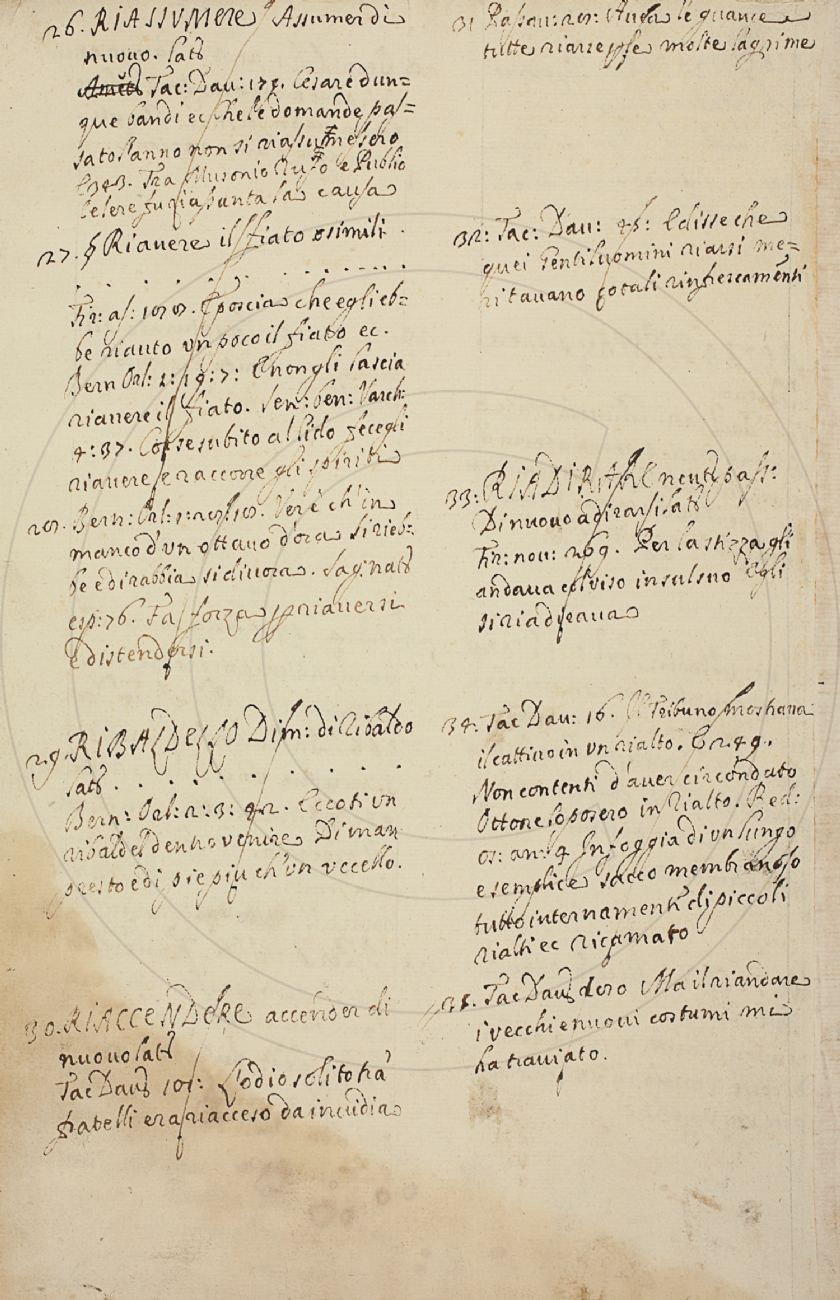 26. RIASSVMERE Assumer di
nuovo. Lat.
Tac: Dav: 178. Cesare dun=
que bandì ec che le domande pas=
sato l'anno non si riassumessero
E 343. Tra Musonio Rufo e Publio
Celere fu riassunta la causa
27. § Riavere il fiato o simili .
. . . . . . . . . . . .
Fir: as: E poscia che egli eb=
be riauto un poco il fiato ec.
Bern Orl: 2: 19: 7: E non gli lascia
riavere il fiato. Sen: ben: Varch:
4: 37. Corse subito al lido fecegli
riavere e raccorre gli spiriti
28. Bern: Orl: Ver'è ch'in
manco d'un ottavo d'ora si rieb=
be e di rabbia si divora. Sag: nat
esp: 76. Fa forza p riaversi
e distendersi.
29. RIBALDELLO Dim: di Ribaldo
Lat. . . . . . . . . .
Bern: Orl: 2: 3: 42. Eccoti un
ribaldel dentro venire Di man
presto e di piè più ch'un uccello.
30. RIACCENDERE accender di
nuovo Lat
Tac Dav L'odio solito tra
fratelli era riacceso da invidia
31 Passav: Avea le guance
tutte riarse p le molte lagrime
32: Tac: Dav: E disse che
quei Gentiluomini riarsi me=
ritavano cotali rinfrescamenti
33: RIADIRARE neut: pass:
Di nuovo adirarsi Lat
Fir: nov: 269. Per la stizza gli
andava el viso in su e'n giù Egli
si riadirava
34: Tac Dav: 16. Il Tribuno mostrava
il cattivo in un rialto. E 249.
Non contenti d'aver circondato
Ottone lo posero in Rialto. Red:
os: an: 4 In foggia di un lungo
e semplice sacco membranoso
tutto internamente di piccoli
rialti ec ricamato
35. Tac Dav Ma il riandare
i vecchi e nuovi costumi mi
ha traviato.